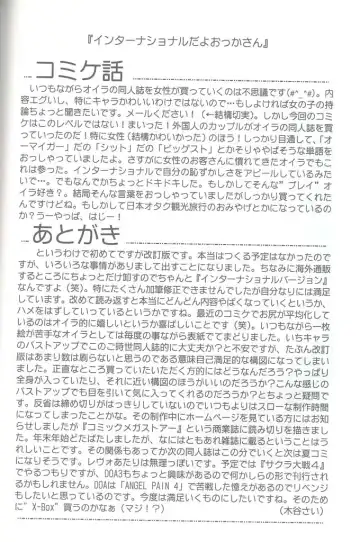 『インターナショナルだよおっかさん』
コミケ話
いつもながらオイラの同人誌を女性が買っていくのは不思議です(#^_^#)。内
容エグいし、特にキャラかわいいわけではないので…もしよければ女の子の持
論ちょっと聞きたいです。メールください！（←結構切実）。しかし今回のコミ
ケはこのレベルではない！まいった！外国人のカップルがオイラの同人誌を買
っていったのだ！特に女性（結構かわいかった）のほう！しっかり目通して、「オ
ーマイガー」だの「シット」だの「ビッグスト」とかそりゃやばそうな単語を
おっしゃっていましたよ。さすがに女性のお客さんに慣れてきたオイラでもこ
れは参った。インターナショナルで自分の恥ずかしさをアピールしているみた
いで…。でもなんでかちょっとドキドキした。もしかしてそんな”プレイ”オ
イラ好き？。結局そんな言葉をおっしゃっていましたがしっかり買ってくれた
んですけどね。もしかして日本オタク観光旅行のおみやげとかになっているの
か？うーやっば、はじー！
あとがき
というわけで初めてですが改訂版です。本当はつくる予定はなかったので
すが、いろいろな事情がありまして出すことになりました。ちなみに海外通販
するところにちょっとだけ卸すのでちゃんと『インターナショナルバージョン』
なんですよ（笑）。特にたくさん加筆修正できませんでしたが自分なりには満足
しています。改めて読み返すと本当にどんどん内容やばくなっていくというか、
ハメをはずしていっているというかですね。最近のコミケでお尻が平均化して
いるのはオイラ的に嬉しいというか喜ばしいことです（笑）。いつもながら一枚
絵が苦手なオイラとしては毎度の事ながら表紙でてまどりました。いちキャラ
のバストアップでこのご時世同人誌的に大丈夫か？と不安ですが、たぶん改訂
版はあまり数は刷らないと思うのである意味自己満足的な構図になってしまい
ました。正直なところ買っていただいてくださった方的にはどうなんだろう？やっぱり
全身が入っていたり、それに近い構図のほうがいいのだろうか？こんな感じの
バストアップでも目を引いて気に入ってくれるのだろうか？とちょっと疑問で
す。反省は締め切りがはっきりしていないのでいつもよりはスローな制作時間
になってしまったことかな。その制作中にホームページを見ている方にはお知
らせしましたが『コミックメガストアー』という商業誌に読み切りを描きまし
た。年末年始どたばたしましたが、なにはともあれ雑誌に載るということはう
れしいことです。その関係もあってか次の同人誌はこの分でいくと次は夏コミ
になりそうです。レヴォあたりは無理っぽいです。予定では『サクラ大戦４』
でやるつもりですが、DOA3もちょっと興味があるので何かしらの形で刊行され
るかもしれません。DOAは「ANGEL PAIN 4」で苦戦した憶えがあるのでリベンジ
もしたいと思っているのです。今度は満足いくものにしたいですね。そのため
に”X-Box”買うのかなぁ（マジ！？）
（木谷さい）